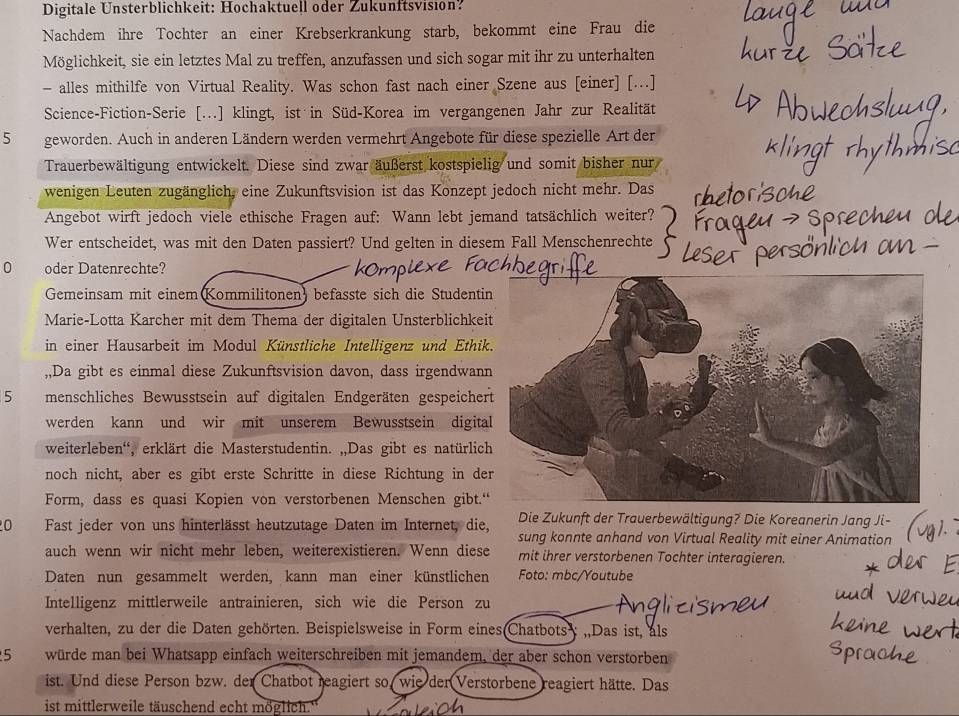 Digitale Unsterblichkeit: Hochaktuell oder Zukunftsvision?
Nachdem ihre Tochter an einer Krebserkrankung starb, bekommt eine Frau die
Möglichkeit, sie ein letztes Mal zu treffen, anzufassen und sich sogar mit ihr zu unterhalten
– alles mithilfe von Virtual Reality. Was schon fast nach einer Szene aus [einer] [...]
Science-Fiction-Serie [...] klingt, ist in Süd-Korea im vergangenen Jahr zur Realität
5 geworden. Auch in anderen Ländern werden vermehrt Angebote für diese spezielle Art der
Trauerbewältigung entwickelt. Diese sind zwar äußerst kostspielig und somit bisher nur
wenigen Leuten zugänglich, eine Zukunftsvision ist das Konzept jedoch nicht mehr. Das
Angebot wirft jedoch viele ethische Fragen auf: Wann lebt jemand tatsächlich weiter?
Wer entscheidet, was mit den Daten passiert? Und gelten in diesem Fall Menschenrechte
0 oder Datenrechte?
Gemeinsam mit einem Kommilitonen¹ befasste sich die Studentin
Marie-Lotta Karcher mit dem Thema der digitalen Unsterblichkeit
in einer Hausarbeit im Modul Künstliche Intelligenz und Ethik.
„Da gibt es einmal diese Zukunftsvision davon, dass irgendwann
5 menschliches Bewusstsein auf digitalen Endgeräten gespeichert
werden kann und wir mit unserem Bewusstsein digital
weiterleben“, erklärt die Masterstudentin. „Das gibt es natürlich
noch nicht, aber es gibt erste Schritte in diese Richtung in der
Form, dass es quasi Kopien von verstorbenen Menschen gibt.“
20 Fast jeder von uns hinterlässt heutzutage Daten im Internet, die,
auch wenn wir nicht mehr leben, weiterexistieren. Wenn diese
Daten nun gesammelt werden, kann man einer künstlichen
Intelligenz mittlerweile antrainieren, sich wie die Person zu
verhalten, zu der die Daten gehörten. Beispielsweise in Form eines Chatbots²: „Das ist, als
25 würde man bei Whatsapp einfach weiterschreiben mit jemandem, der aber schon verstorben
ist. Und diese Person bzw. der Chatbot reagiert so, wie der Verstorbene reagiert hätte. Das
ist mittlerweile täuschend echt möglich.“
Lange und
kurze Sätze
↳ Abwechslung,
klingt rhythmisc
rhetorische
Fragen → sprechen de
Leser persönlich an –
komplexe Fachbegriffe
Die Zukunft der Trauerbewältigung? Die Koreanerin Jang Ji-
sung konnte anhand von Virtual Reality mit einer Animation
mit ihrer verstorbenen Tochter interagieren.
Foto: mbc/Youtube
(vgl.
* der E
und verwen
keine wert
Sprache
Anglizismen